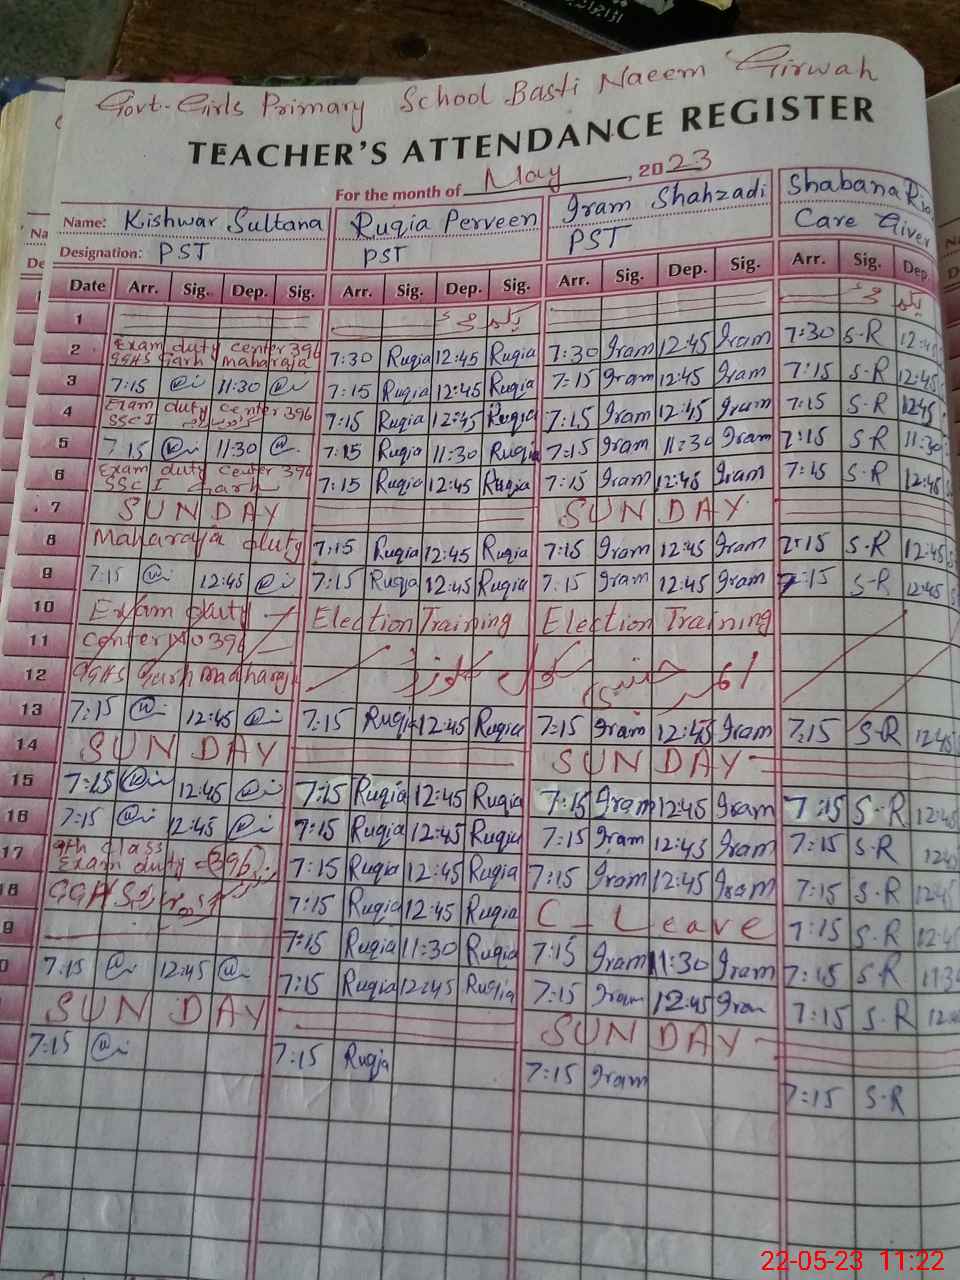 Govt. Girls Primary School Basti Naeem Girwah
TEACHER'S ATTENDANCE REGISTER
For the month of May, 2023
Name: Kishwar Sultana Ruqia Perveen Iram Shahzadi Shabana
Designation: PST PST PST Care Giver
Date Arr. Sig. Dep. Sig. Arr. Sig. Dep. Sig. Arr. Sig. Dep. Sig. Arr. Sig. Dep.
1
2 Exam duty center 396 GGHS Garh maharaja 7:30 Ruqia 12:45 Ruqia 7:30 Iram 12:45 Iram 7:30 S-R 12:45
3 7:15 11:30 7:15 Ruqia 12:45 Ruqia 7:15 Iram 12:45 Iram 7:15 S-R 12:45
4 Exam duty center 396 SSC I 7:15 Ruqia 12:45 Ruqia 7:15 Iram 12:45 Iram 7:15 S-R 12:45
5 7:15 11:30 7:15 Ruqia 11:30 Ruqia 7:15 Iram 11:30 Iram 7:15 S-R 11:30
6 Exam duty center 396 SSC I Garh 7:15 Ruqia 12:45 Ruqia 7:15 Iram 12:45 Iram 7:15 S-R 12:45
7 SUNDAY SUNDAY
8 Maharaja duty 7:15 Ruqia 12:45 Ruqia 7:15 Iram 12:45 Iram 7:15 S-R 12:45
9 7:15 12:45 7:15 Ruqia 12:45 Ruqia 7:15 Iram 12:45 Iram 7:15 S-R 12:45
10 Exam duty Election Training Election Training
11 center No 396
12 GGHS Garh Maharaj
13 7:15 12:45 7:15 Ruqia 12:45 Ruqia 7:15 Iram 12:45 Iram 7:15 S-R 12:45
14 SUNDAY SUNDAY
15 7:15 12:45 7:15 Ruqia 12:45 Ruqia 7:15 Iram 12:45 Iram 7:15 S-R 12:45
16 7:15 12:45 7:15 Ruqia 12:45 Ruqia 7:15 Iram 12:45 Iram 7:15 S-R 12:45
17 9th class Exam duty 396 7:15 Ruqia 12:45 Ruqia 7:15 Iram 12:45 Iram 7:15 S-R 12:45
18 GGHS 7:15 Ruqia 12:45 Ruqia C-Leave 7:15 S-R 12:45
9 7:15 Ruqia 11:30 Ruqia 7:15 Iram 11:30 Iram 7:15 S-R 11:30
0 7:15 12:45 7:15 Ruqia 12:45 Ruqia 7:15 Iram 12:45 Iram 7:15 S-R
SUNDAY SUNDAY
7:15 7:15 Ruqia 7:15 Iram 7:15 S-R
22-05-23 11:22